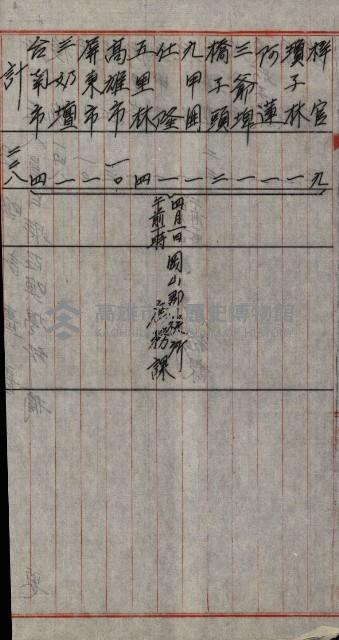 梓官 九
瓊子林 一
阿蓮 一
三爺埤 一
橋子頭 二
九甲囲 一
仕隆 一
五里林 四
高雄市 一〇
屏東市 一
三奶壇 一
台南市 四
計 二三八
四月一日
午前一時 岡山郡役所
庶務課
高雄市立歷史博物館